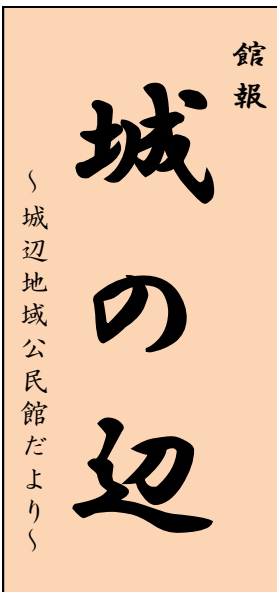 館報
城の辺
～城辺地域公民館だより～